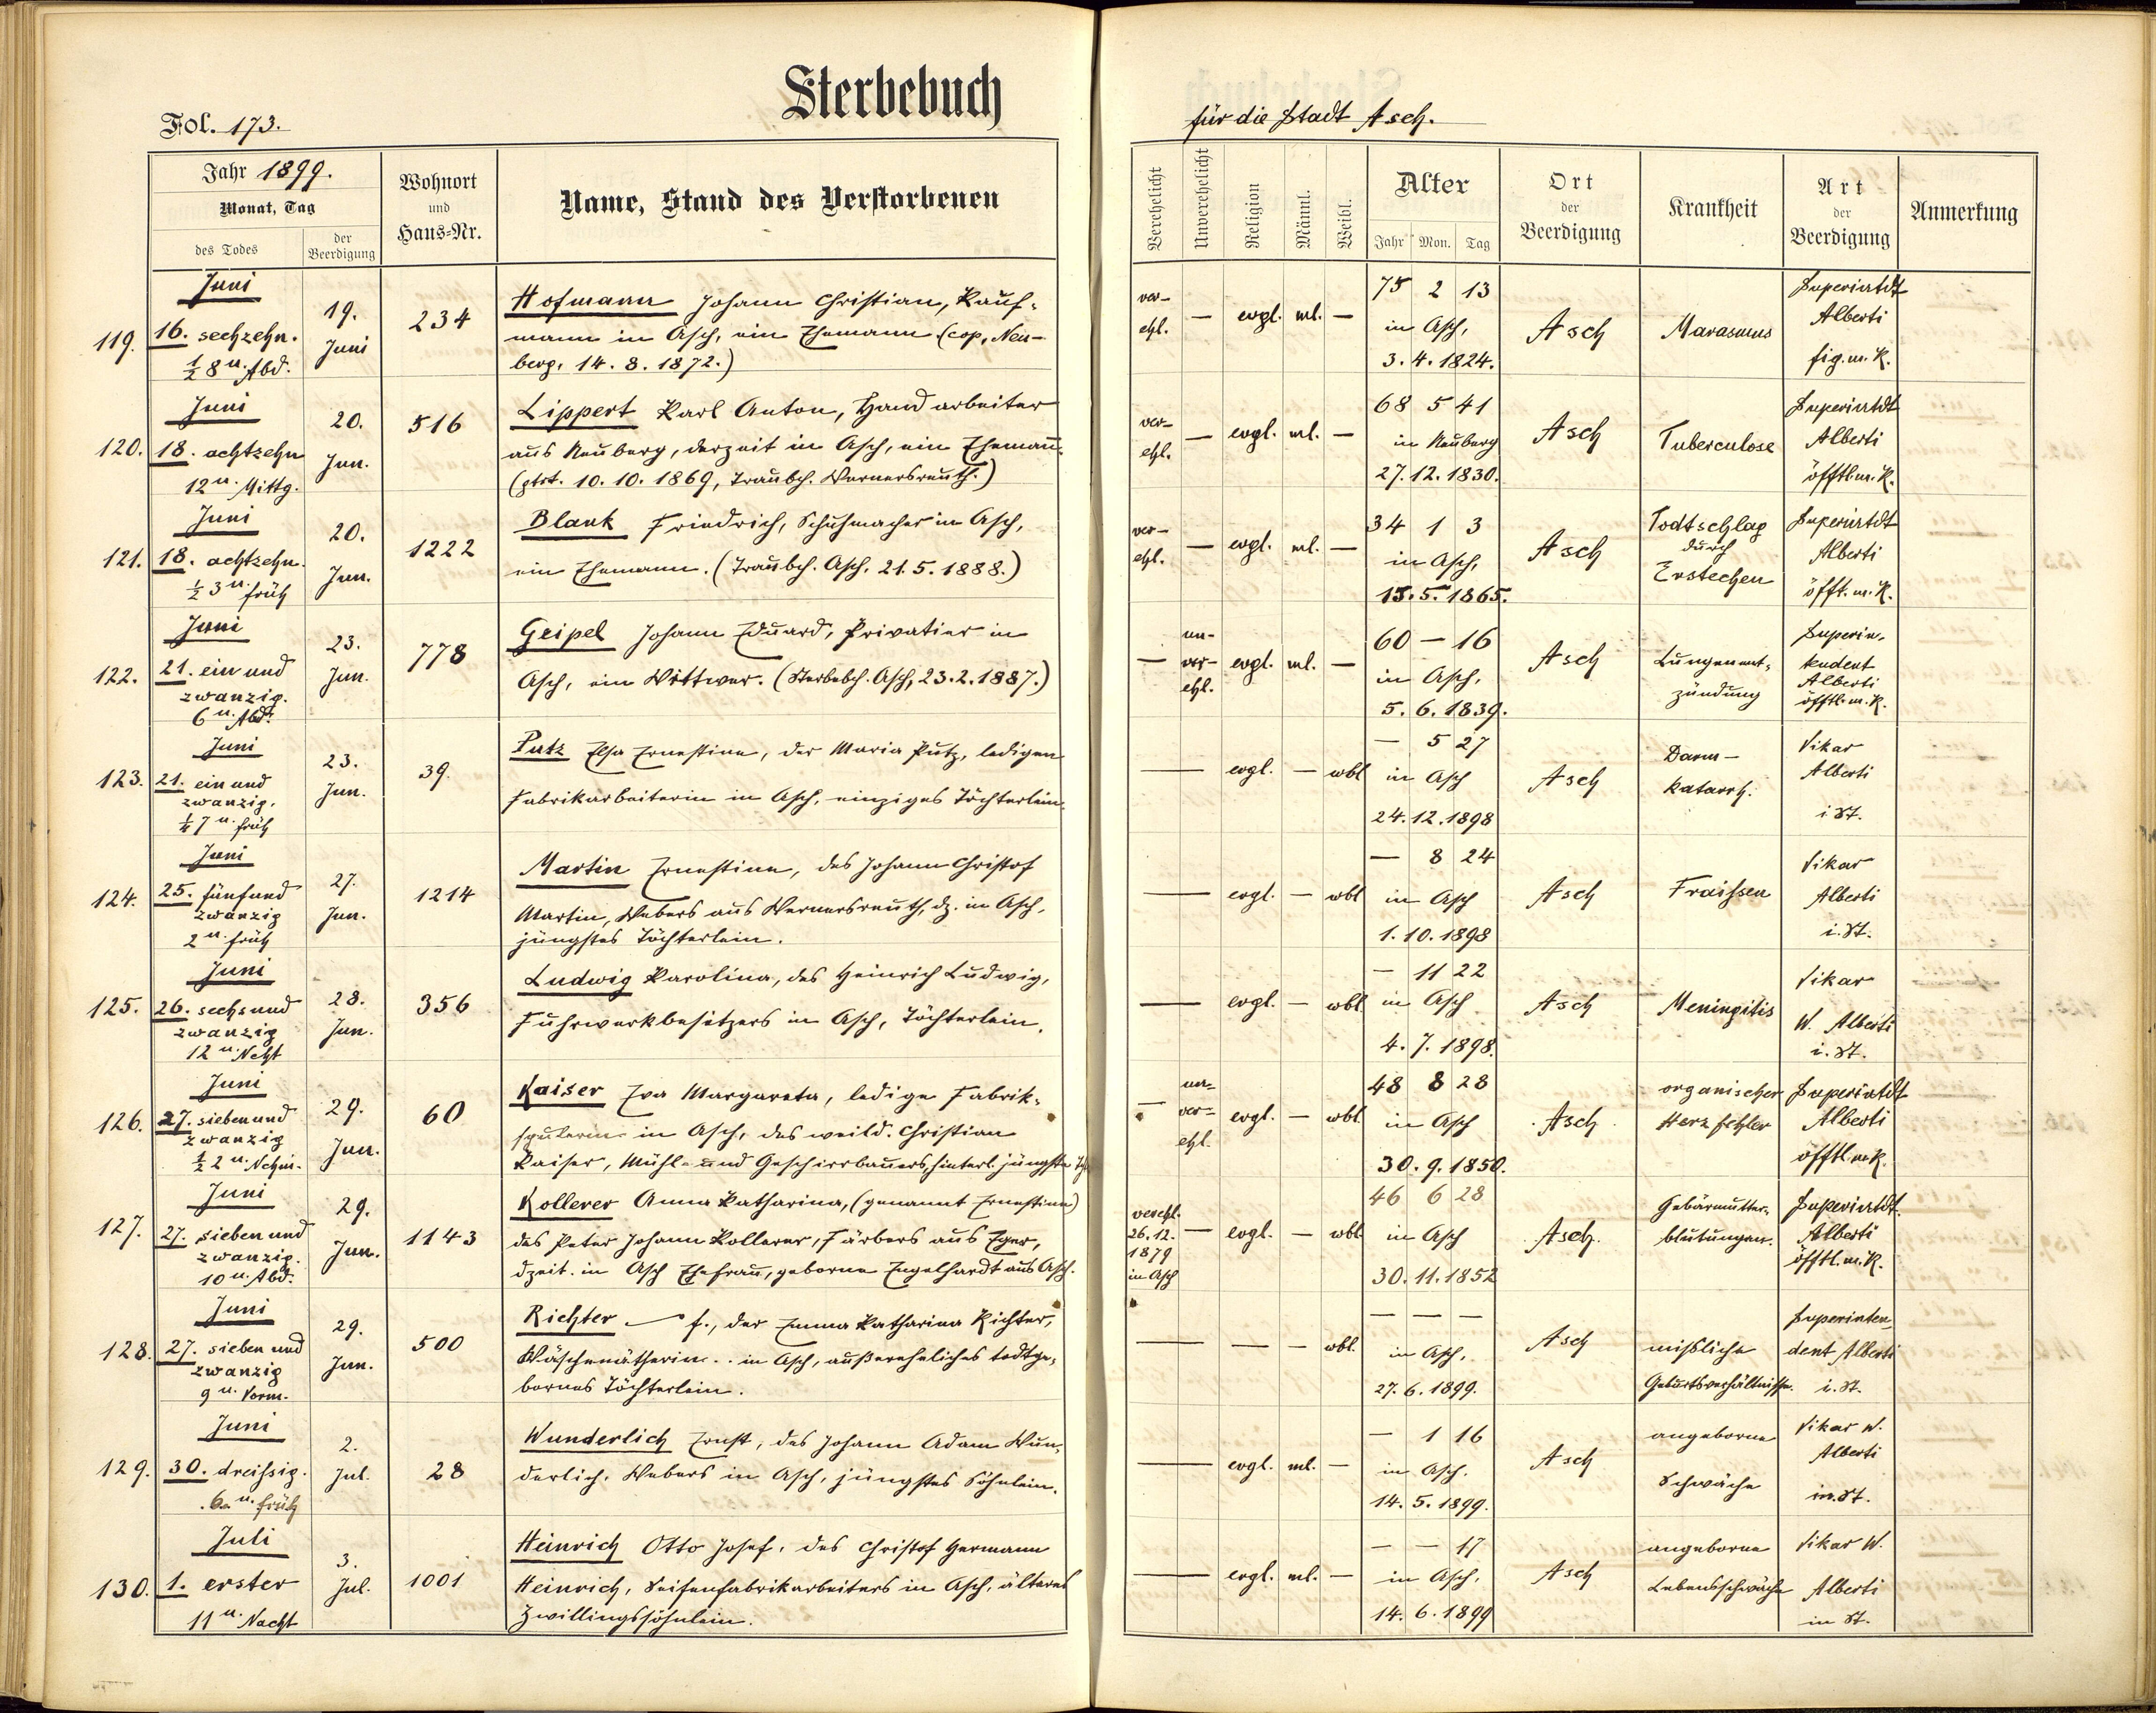 Sterbebuch
für die Stadt Asch.
Fol. 173.
Jahr 1899.
Monat, Tag
des Todes
der Beerdigung
Wohnort
und
Haus-Nr.
Name, Stand des Verstorbenen
Verehelicht
Unverehelicht
Religion
Männl.
Weibl.
Alter
Jahr Mon. Tag
Ort
der
Beerdigung
Krankheit
Art
der
Beerdigung
Anmerkung
119.
Juni
16. sechzehn.
½ 8 u. Abd.
19.
Juni
234
Hofmann Johann Christian, Kauf-
mann in Asch, ein Ehemann (cop. Neu-
berg. 14. 8. 1872.)
ver-
ehl.
—
evgl.
ml.
—
75 2 13
in Asch,
3. 4. 1824.
Asch
Marasmus
Superintdt
Alberti
fig. m. K.
120.
Juni
18. achtzehn
12 u. Mittg.
20.
Jun.
516
Lippert Karl Anton, Handarbeiter
aus Neuberg, derzeit in Asch, ein Ehemann.
(gtrt. 10. 10. 1869, Traubch. Wernersreuth.)
ver-
ehl.
—
evgl.
ml.
—
68 5 41
in Neuberg
27. 12. 1830.
Asch
Tuberculose
Superintdt
Alberti
öfftl. m. K.
121.
Juni
18. achtzehn.
½ 3 u. früh
20.
Jun.
1222
Blank Friedrich, Schuhmacher in Asch,
ein Ehemann. (Traubch. Asch. 21. 5. 1888.)
ver-
ehl.
—
evgl.
ml.
—
34 1 3
in Asch,
15. 5. 1865.
Asch
Todtschlag
durch
Erstechen
Superintdt
Alberti
öfft. m. K.
122.
Juni
21. ein und
zwanzig.
6 u. Abd.
23.
Jun.
778
Geipel Johann Eduard, Privatier in
Asch, ein Wittwer. (Sterbebch. Asch, 23. 2. 1887.)
—
un-
ver-
ehl.
evgl.
ml.
—
60 — 16
in Asch.
5. 6. 1839.
Asch
Lungenent-
zündung
Superin-
tendent
Alberti
öfftl. m. K.
123.
Juni
21. ein und
zwanzig.
¼ 7 u. früh
23.
Jun.
39.
Putz Elsa Ernestine, der Maria Putz, ledigen
Fabrikarbeiterin in Asch, einziges Töchterlein.
—
evgl.
—
wbl
— 5 27
in Asch
24. 12. 1898
Asch
Darm-
katarrh.
Vikar
Alberti
i. St.
124.
Juni
25. fünfund
zwanzig
2 u. früh
27.
Jun.
1214
Martin Ernestine, des Johann Christof
Martin, Webers aus Wernersreuth, dz. in Asch,
jüngstes Töchterlein.
—
evgl.
—
wbl
— 8 24
in Asch
1. 10. 1898
Asch
Fraissen
Vikar
Alberti
i. St.
125.
Juni
26. sechsund
zwanzig
12 u. Ncht
28.
Jun.
356
Ludwig Karolina, des Heinrich Ludwig,
Fuhrwerkbesitzers in Asch, Töchterlein.
—
evgl.
—
wbl.
— 11 22
in Asch
4. 7. 1898.
Asch
Meningitis
Vikar
W. Alberti
i. St.
126.
Juni
27. siebenund
zwanzig
½ 2 u. Nchm.
29.
Jun.
60
Kaiser Eva Margareta, ledige Fabrik-
spulerin in Asch, des weild. Christian
Kaiser, Mühl- und Geschirrbauers, hinterl. jüngste
—
un-
ver-
ehl.
evgl.
—
wbl.
48 8 28
in Asch
30. 9. 1850.
Asch
organischer
Herzfehler
Superintdt
Alberti
öfftl. m. K.
127.
Juni
27. sieben und
zwanzig.
10 u. Abd.
29.
Jun.
1143
Kollerer Anna Katharina, (genannt Ernestine)
des Peter Johann Kollerer, Färbers aus Eger,
dzeit. in Asch Ehefrau, geborne Engelhardt aus Asch.
verehl.
26. 12.
1879
in Asch
—
evgl.
—
wbl.
46 6 28
in Asch
30. 11. 1852
Asch.
Gebärmutter-
blutungen.
Superintdt.
Alberti
öfftl. m. K.
128.
Juni
27. sieben und
zwanzig
9 u. Vorm.
29.
Jun.
500
Richter — f., der Emma Katharina Richter,
Wäschenätherin.. in Asch, außereheliches todtge-
bornes Töchterlein.
—
—
—
wbl.
— — —
in Asch.
27. 6. 1899.
Asch
mißliche
Geburtsverhältnisse.
Superinten-
dent Alberti
i. St.
129.
Juni
30. dreissig.
6 u. früh
2.
Jul.
28
Wunderlich Ernst, des Johann Adam Wun-
derlich, Webers in Asch, jüngstes Söhnlein.
—
evgl.
ml.
—
— 1 16
in Asch.
14. 5. 1899.
Asch
angeborne
Schwäche
Vikar W.
Alberti
in. St.
130.
Juli
1. erster
11 u. Nacht
3.
Jul.
1001
Heinrich Otto Josef, des Christof Hermann
Heinrich, Seifenfabrikarbeiters in Asch, älteres
Zwillingssöhnlein.
—
evgl.
ml.
—
— — 17
in Asch.
14. 6. 1899
Asch
angeborne
Lebensschwäche
Vikar W.
Alberti
in St.